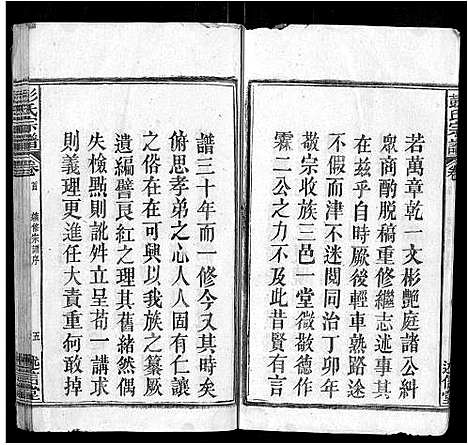 彭氏宗譜
卷
述信堂
若萬章乾一文彬艷庭諸公糾
眾商酌脫稿重修繼志述事其
在茲乎自時厥後輕車熟路途
不假而津不迷閱同治丁卯年
敬宗收族三邑一堂微敬德作
霖二公之力不及此昔賢有言
譜三十年而一修今其時矣
俯思孝弟之心人人固有仁讓
之俗在在可興以我族之纂厥
遺編譬艮紅之理其舊緒然偶
失檢點則訛舛立呈苟一講求
則義理更進任大責重何敢掉
彭氏宗譜
卷首
續修宗譜序
五
述信堂